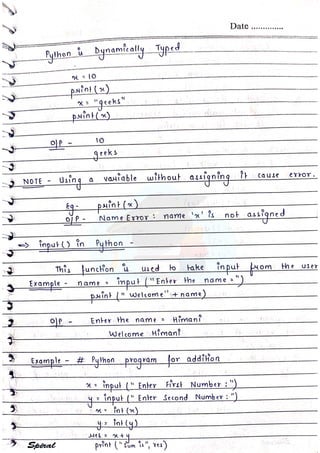 Date ..............
Python is Dynamically Typed
x = 10
print (x)
x = "geeks"
print (x)
O/P - 10
geeks
NOTE - Using a variable without assigning it cause error.
Eg- print (x)
O/P - Name Error : name 'x' is not assigned
⇒ input () in Python -
This function is used to take input from the user
Example - name = input ("Enter the name = ")
print (" Welcome" + name)
O/P - Enter the name = Himani
Welcome Himani
Example - # Python program for addition
x = input (" Enter First Number : ")
y = input (" Enter Second Number : ")
x = int (x)
y = int (y)
res = x + y
print ("Sum is", res)
Spiral